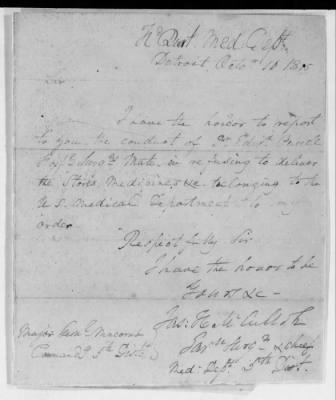 Hd Qurt. Med. Dept.
Detroit Octo. 10 1815
I have the honor to report
to you the conduct of Dr
Surgn Mate in refusing to deliver
the Stores Medicines &c belonging to the
U S. Medical Department to my
order
Respectfully Sir
I have the honor to be
Your &c —
Jas. H. McCulloh
Surgn & chief
Med. Dept. 5th Dist.
Major Genl Macomb
Comandg 5th Distc